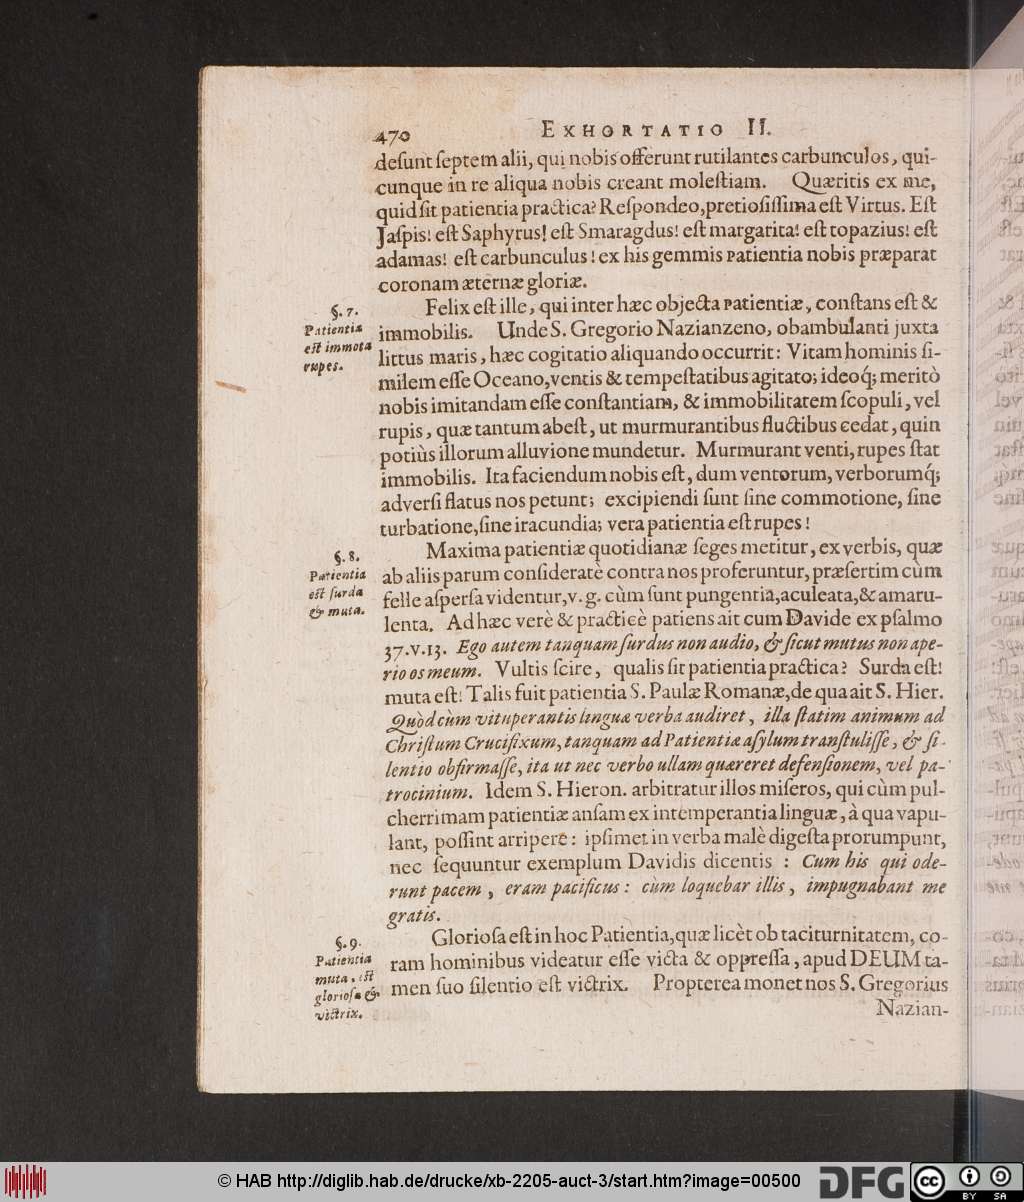 470 EXHORTATIO II.
desunt septem alii, qui nobis offerunt rutilantes carbunculos, qui-
cunque in re aliqua nobis creant molestiam. Quæritis ex me,
quid sit patientia practica? Respondeo, pretiosissima est Virtus. Est
Jaspis! est Saphyrus! est Smaragdus! est margarita! est topazius! est
adamas! est carbunculus! ex his gemmis Patientia nobis præparat
coronam æternæ gloriæ.
§. 7.
Patientia
est immota
rupes.
Felix est ille, qui inter hæc objecta Patientiæ, constans est &
immobilis. Unde S. Gregorio Nazianzeno, obambulanti juxta
littus maris, hæc cogitatio aliquando occurrit: Vitam hominis si-
milem esse Oceano, ventis & tempestatibus agitato; ideoq́; meritò
nobis imitandam esse constantiam, & immobilitatem scopuli, vel
rupis, quæ tantum abest, ut murmurantibus fluctibus cedat, quin
potiùs illorum alluvione mundetur. Murmurant venti, rupes stat
immobilis. Ita faciendum nobis est, dum ventorum, verborumq́;
adversi flatus nos petunt; excipiendi sunt sine commotione, sine
turbatione, sine iracundia; vera patientia est rupes!
§. 8.
Patientia
est surda
& muta.
Maxima patientiæ quotidianæ seges metitur, ex verbis, quæ
ab aliis parum consideratè contra nos proferuntur, præsertim cùm
felle aspersa videntur, v. g. cùm sunt pungentia, aculeata, & amaru-
lenta. Ad hæc verè & practicè patiens ait cum Davide ex psalmo
37. v. 13. Ego autem tanquam surdus non audio, & sicut mutus non ape-
rio os meum. Vultis scire, qualis sit patientia practica? Surda est!
muta est! Talis fuit patientia S. Paulæ Romanæ, de qua ait S. Hier.
Quòd cùm vituperantis linguæ verba audiret, illa statim animum ad
Christum Crucifixum, tanquam ad Patientiæ asylum transtulisse, & si-
lentio obfirmasse, ita ut nec verbo ullam quæreret defensionem, vel pa-
trocinium. Idem S. Hieron. arbitratur illos miseros, qui cùm pul-
cherrimam patientiæ ansam ex intemperantia linguæ, à qua vapu-
lant, possint arripere: ipsimet in verba malè digesta prorumpunt,
nec sequuntur exemplum Davidis dicentis : Cum his qui ode-
runt pacem, eram pacificus: cùm loquebar illis, impugnabant me
gratis.
§. 9.
Patientia
muta, est
gloriosa &
victrix.
Gloriosa est in hoc Patientia, quæ licèt ob taciturnitatem, co-
ram hominibus videatur esse victa & oppressa, apud DEUM ta-
men suo silentio est victrix. Propterea monet nos S. Gregorius
Nazian-
© HAB http://diglib.hab.de/drucke/xb-2205-auct-3/start.htm?image=00500
DFG
cc BY SA